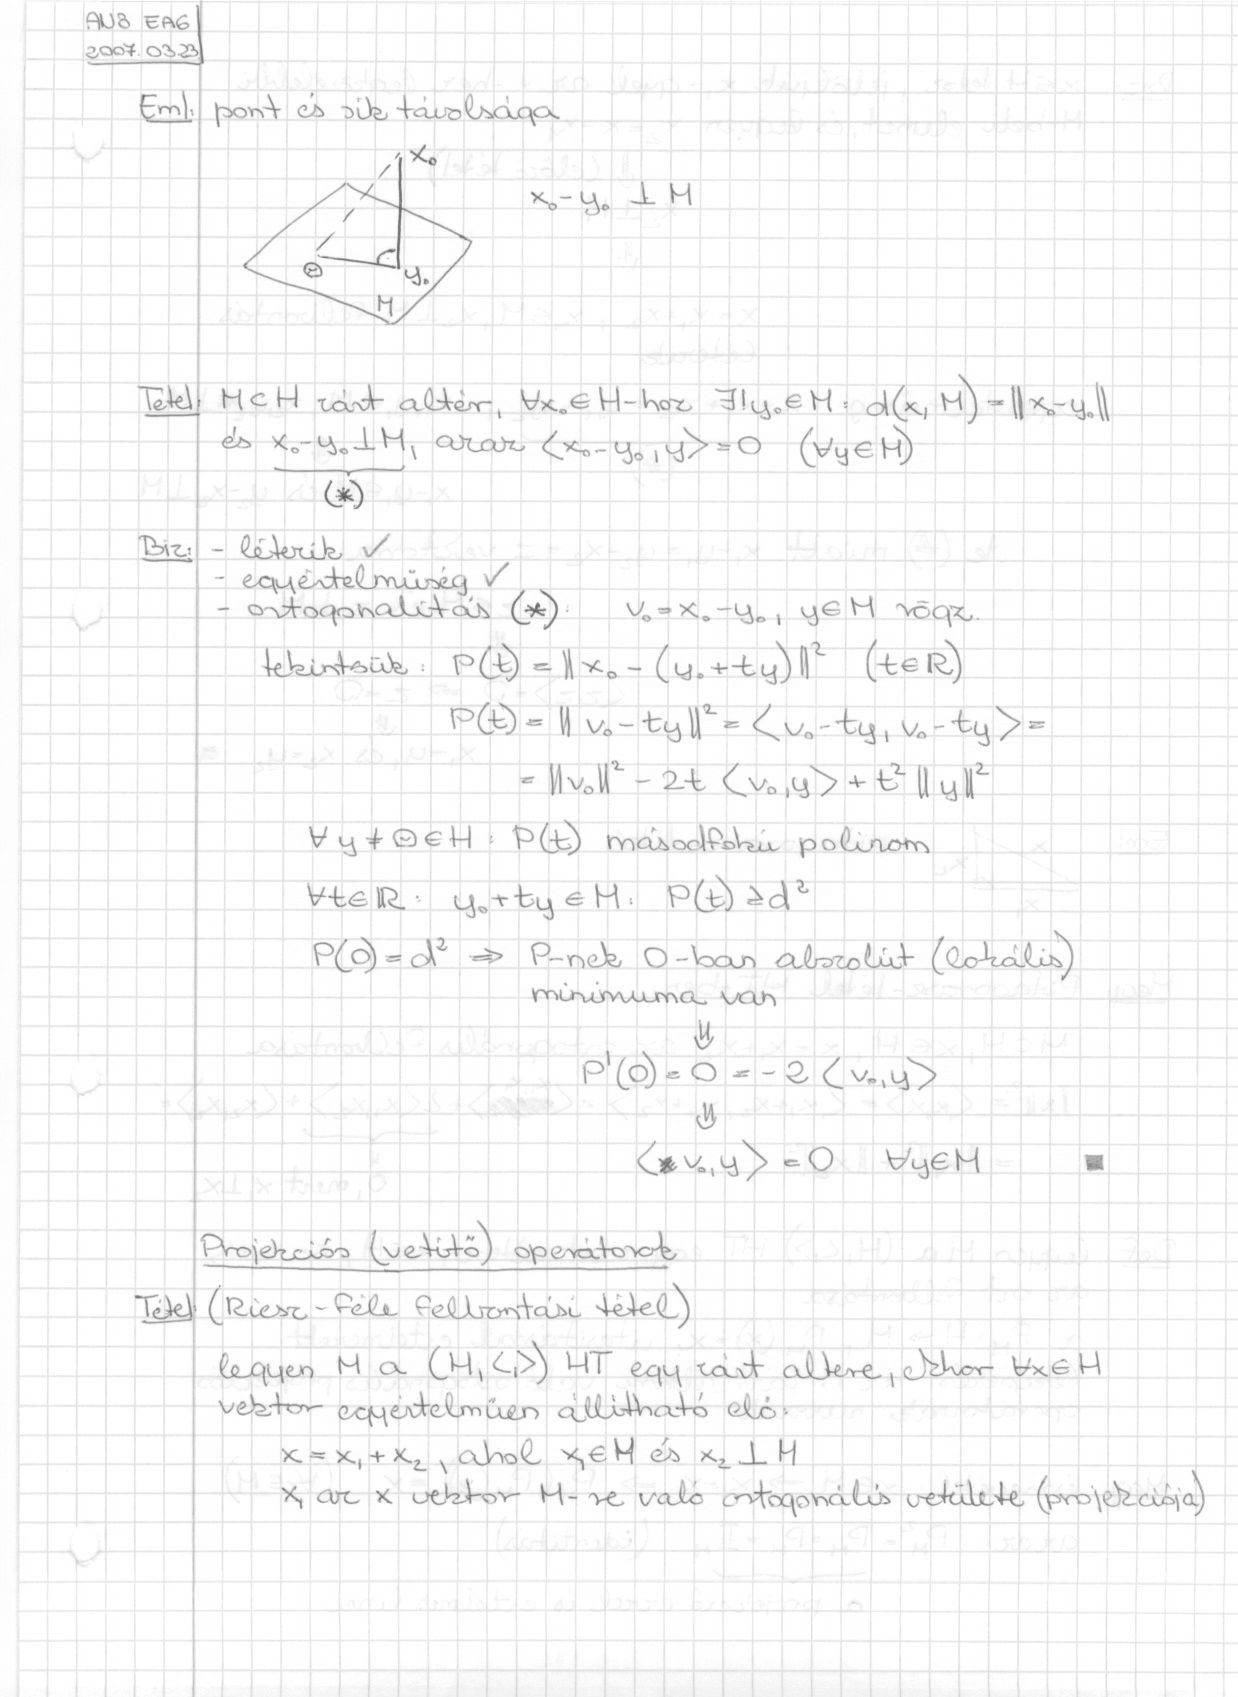 AN3 EA6
2007.03.23
Eml: pont és sík távolsága
x₀
x₀-y₀ ⊥ M
Θ
y₀
M
Tétel: M⊂H zárt altér, ∀x₀∈H-hoz ∃!y₀∈M: d(x, M) = ‖x₀-y₀‖
és x₀-y₀⊥M, azaz ⟨x₀-y₀, y⟩=0 (∀y∈M)
(*)
Biz: - létezik ✓
- egyértelműség ✓
- ortogonalitás (*): v₀=x₀-y₀, y∈M rögz.
tekintsük: P(t) = ‖x₀ - (y₀+ty)‖² (t∈ℝ)
P(t) = ‖v₀-ty‖² = ⟨v₀-ty, v₀-ty⟩ =
= ‖v₀‖² - 2t ⟨v₀,y⟩ + t² ‖y‖²
∀y≠Θ∈H: P(t) másodfokú polinom
∀t∈ℝ: y₀+ty∈M: P(t) ≥ d²
P(0) = d² ⇒ P-nek 0-ban abszolút (lokális)
minimuma van
⇓
P'(0) = 0 = -2 ⟨v₀,y⟩
⇓
⟨v₀,y⟩ = 0 ∀y∈M ■
Projekciós (vetítő) operátorok
Tétel: (Riesz-féle felbontási tétel)
legyen M a (H,⟨,⟩) HT egy zárt altere, ekkor ∀x∈H
vektor egyértelműen állítható elő:
x = x₁+x₂, ahol x₁∈M és x₂⊥M
x₁ az x vektor M-re való ortogonális vetülete (projekciója)